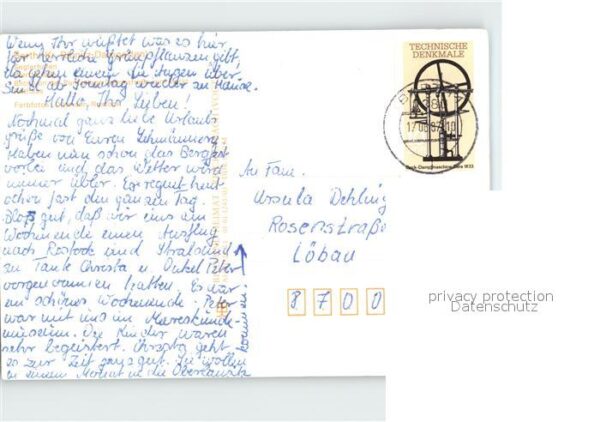 Wenn Ihr wüßtet was es hier
für herrliche Grünpflanzen gibt,
da gehen einem die Augen über.
Sind ab Sonntag wieder zu Hause.
Hallo, Ihr Lieben!
Nochmal ganz liebe Urlaubs-
grüße von Euren Lehmännern
Haben nun schon das Bergfest
vorbei und das Wetter wird
immer übler. Es regnet heut
schon fast den ganzen Tag.
Bloß gut, daß wir uns am
Wochenende einen Ausflug
nach Rostock und Stralsund
zu Tante Christa u. Onkel Peter
vorgenommen hatten. Es war
ein schönes Wochenende. Peter
war mit uns im Meereskunde-
museum. Die Kinder waren
sehr begeistert. Christa geht
es zur Zeit ganz gut. Sie wollen
in einem Monat in die Oberlausitz
kommen.
TECHNISCHE
DENKMALE
17.06.87
An Fam.
Ursula Dehling
Rosenstraße
Löbau
8700
privacy protection
Datenschutz